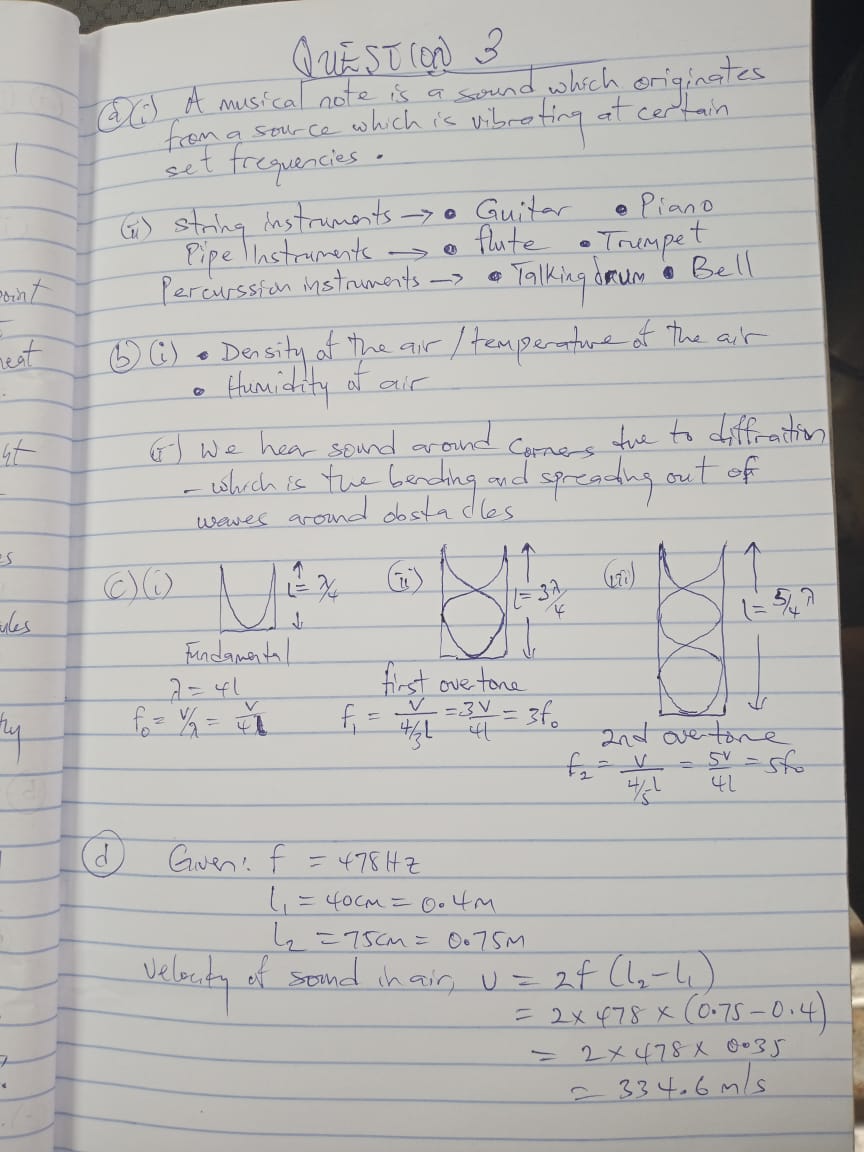 QUESTION 3
(a)(i) A musical note is a sound which originates
from a source which is vibrating at certain
set frequencies.
(ii) string instruments → • Guitar • Piano
Pipe Instruments → • flute • Trumpet
Percurssion instruments → • Talking drum • Bell
(b) (i) • Density of the air / temperature of the air
• Humidity of air
(ii) We hear sound around corners due to diffraction
- which is the bending and spreading out of
waves around obstacles
(c)(i) l = λ/4 (ii) l = 3λ/4 (iii) l = 5/4 λ
Fundamental
first overtone
λ = 4l
f₀ = v/λ = v/4l f₁ = v/(4/3 l) = 3v/4l = 3f₀
2nd overtone
f₂ = v/(4/5 l) = 5v/4l = 5f₀
(d) Given: f = 478Hz
l₁ = 40cm = 0.4m
l₂ = 75cm = 0.75m
Velocity of sound in air, v = 2f (l₂ - l₁)
= 2 x 478 x (0.75 - 0.4)
= 2 x 478 x 0.35
= 334.6 m/s
1
point
heat
st
es
ules
ty